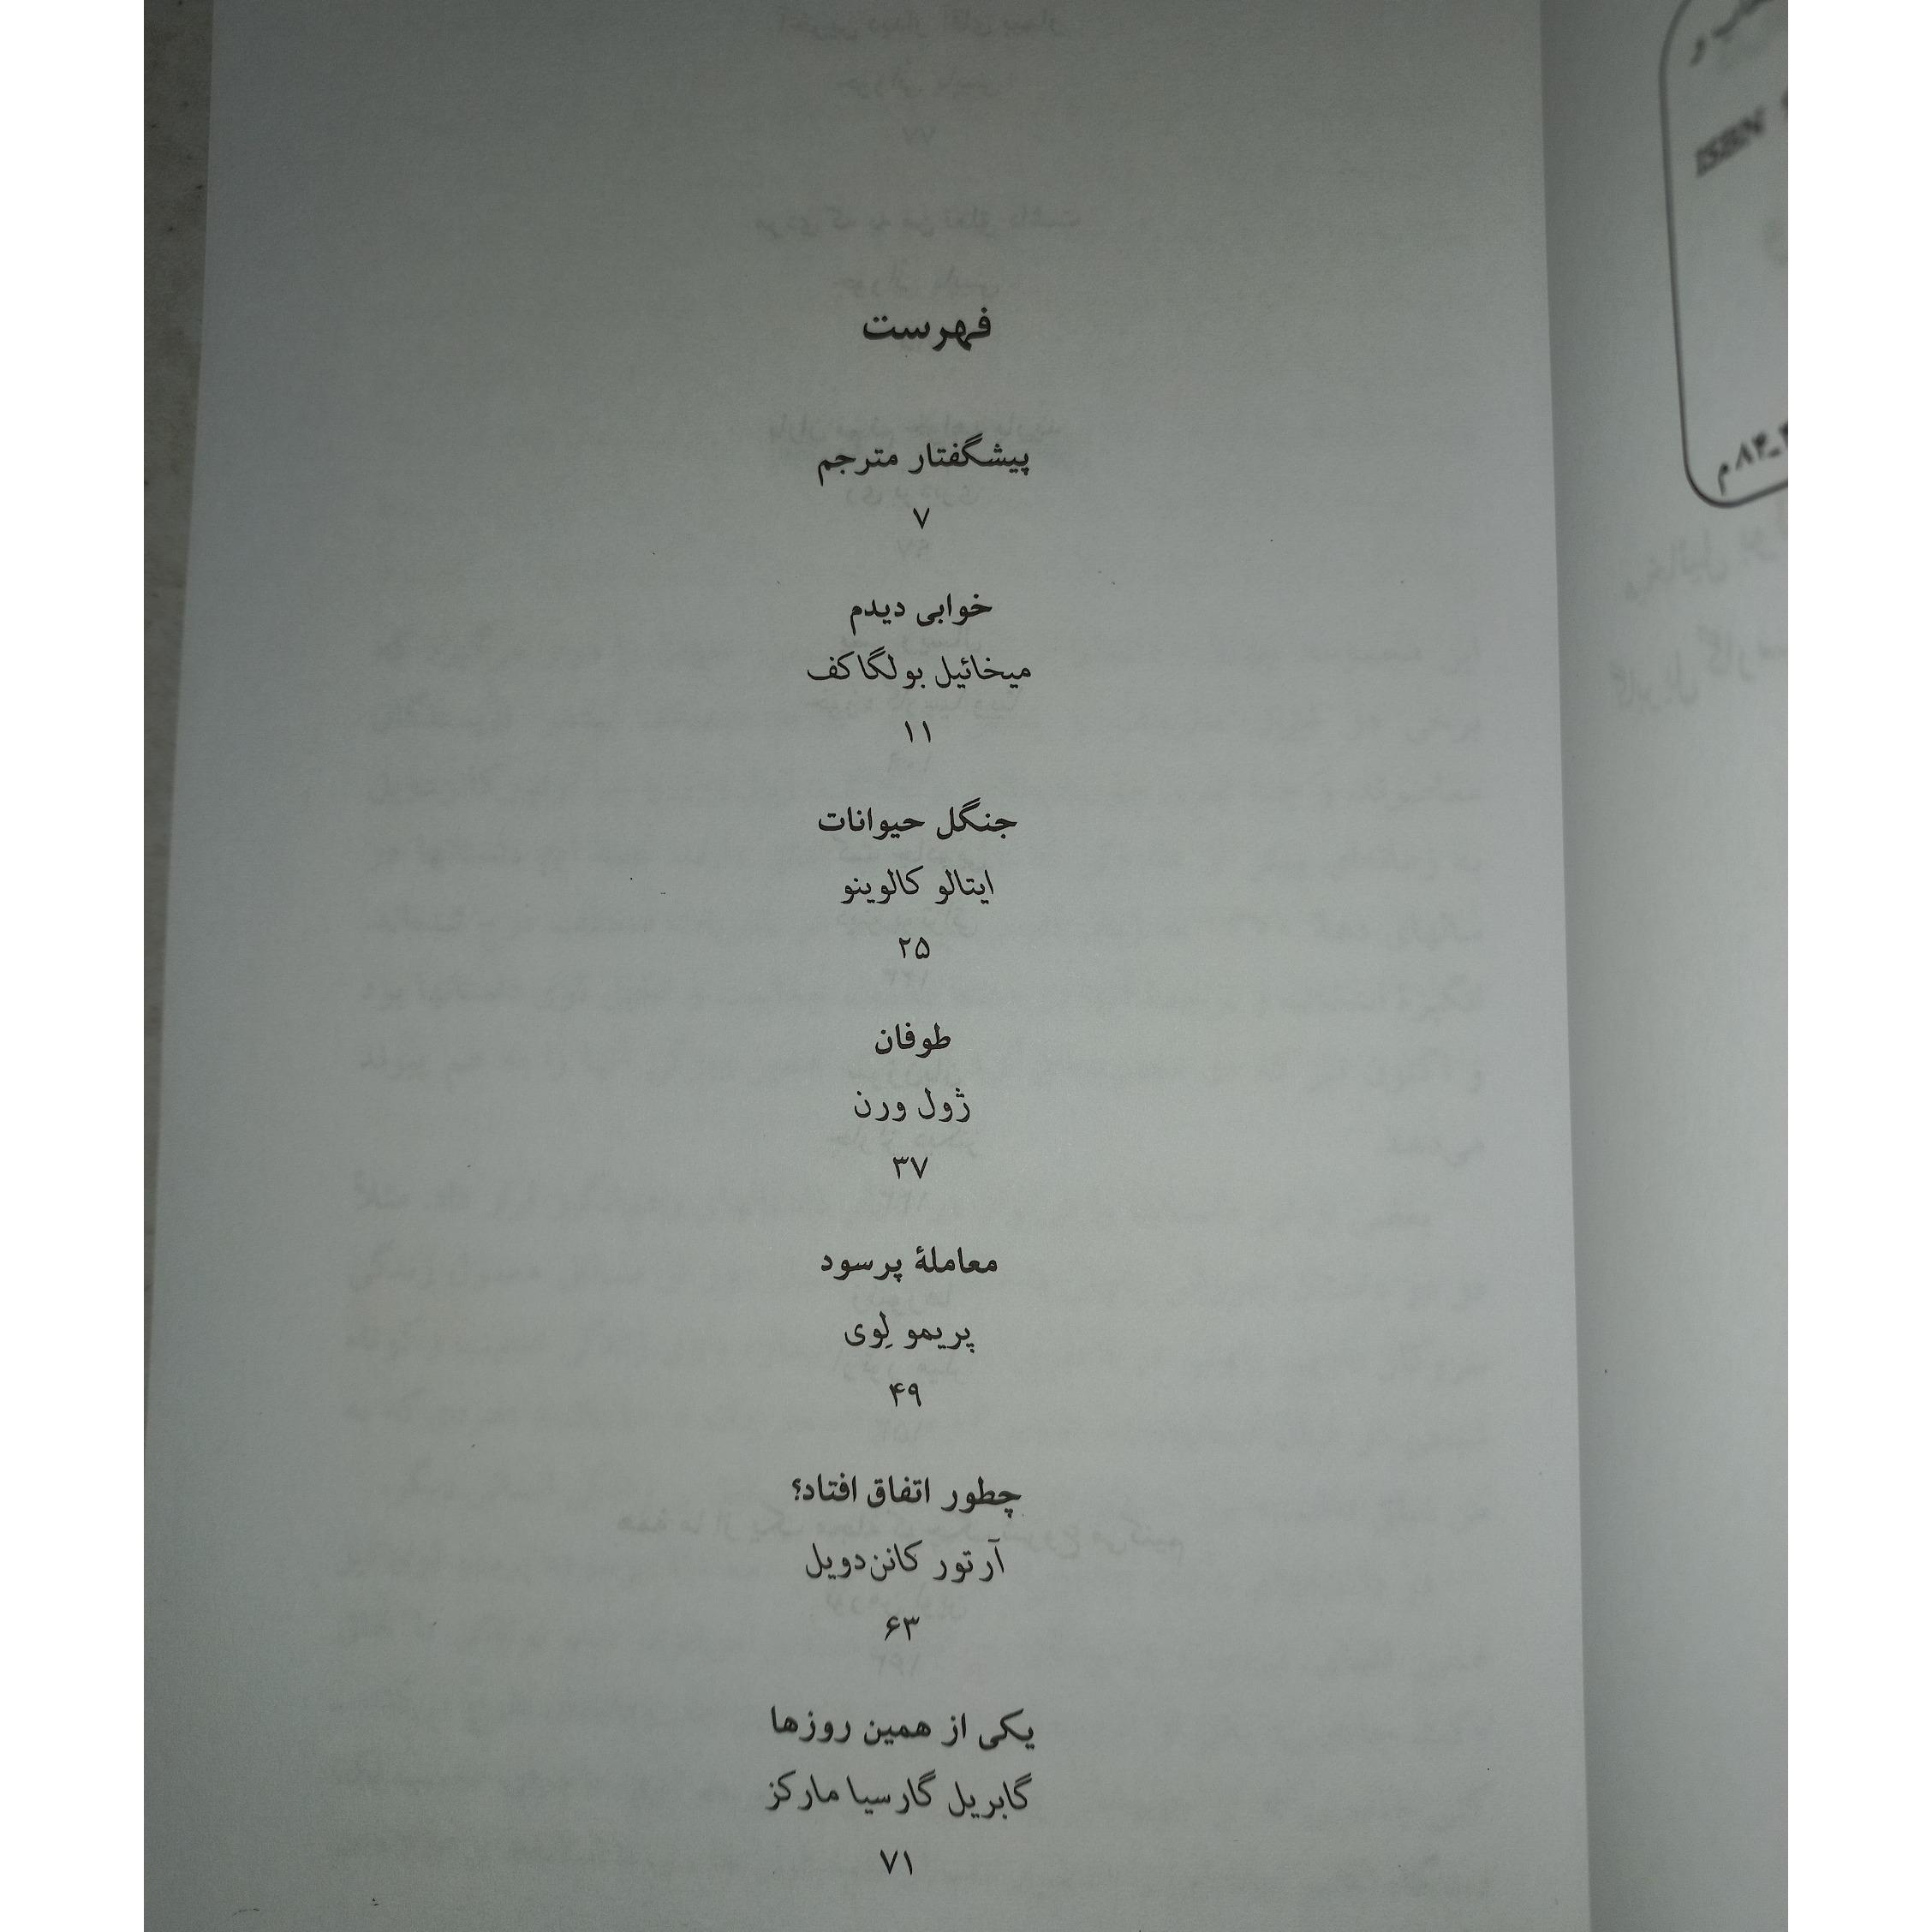 فهرست
پیشگفتار مترجم
۷
خوابی دیدم
میخائیل بولگاکف
۱۱
جنگل حیوانات
ایتالو کالوینو
۲۵
طوفان
ژول ورن
۳۷
معاملهٔ پرسود
پریمو لِوی
۴۹
چطور اتفاق افتاد؟
آرتور کانن‌دویل
۶۳
یکی از همین روزها
گابریل گارسیا مارکز
۷۱
ISBN